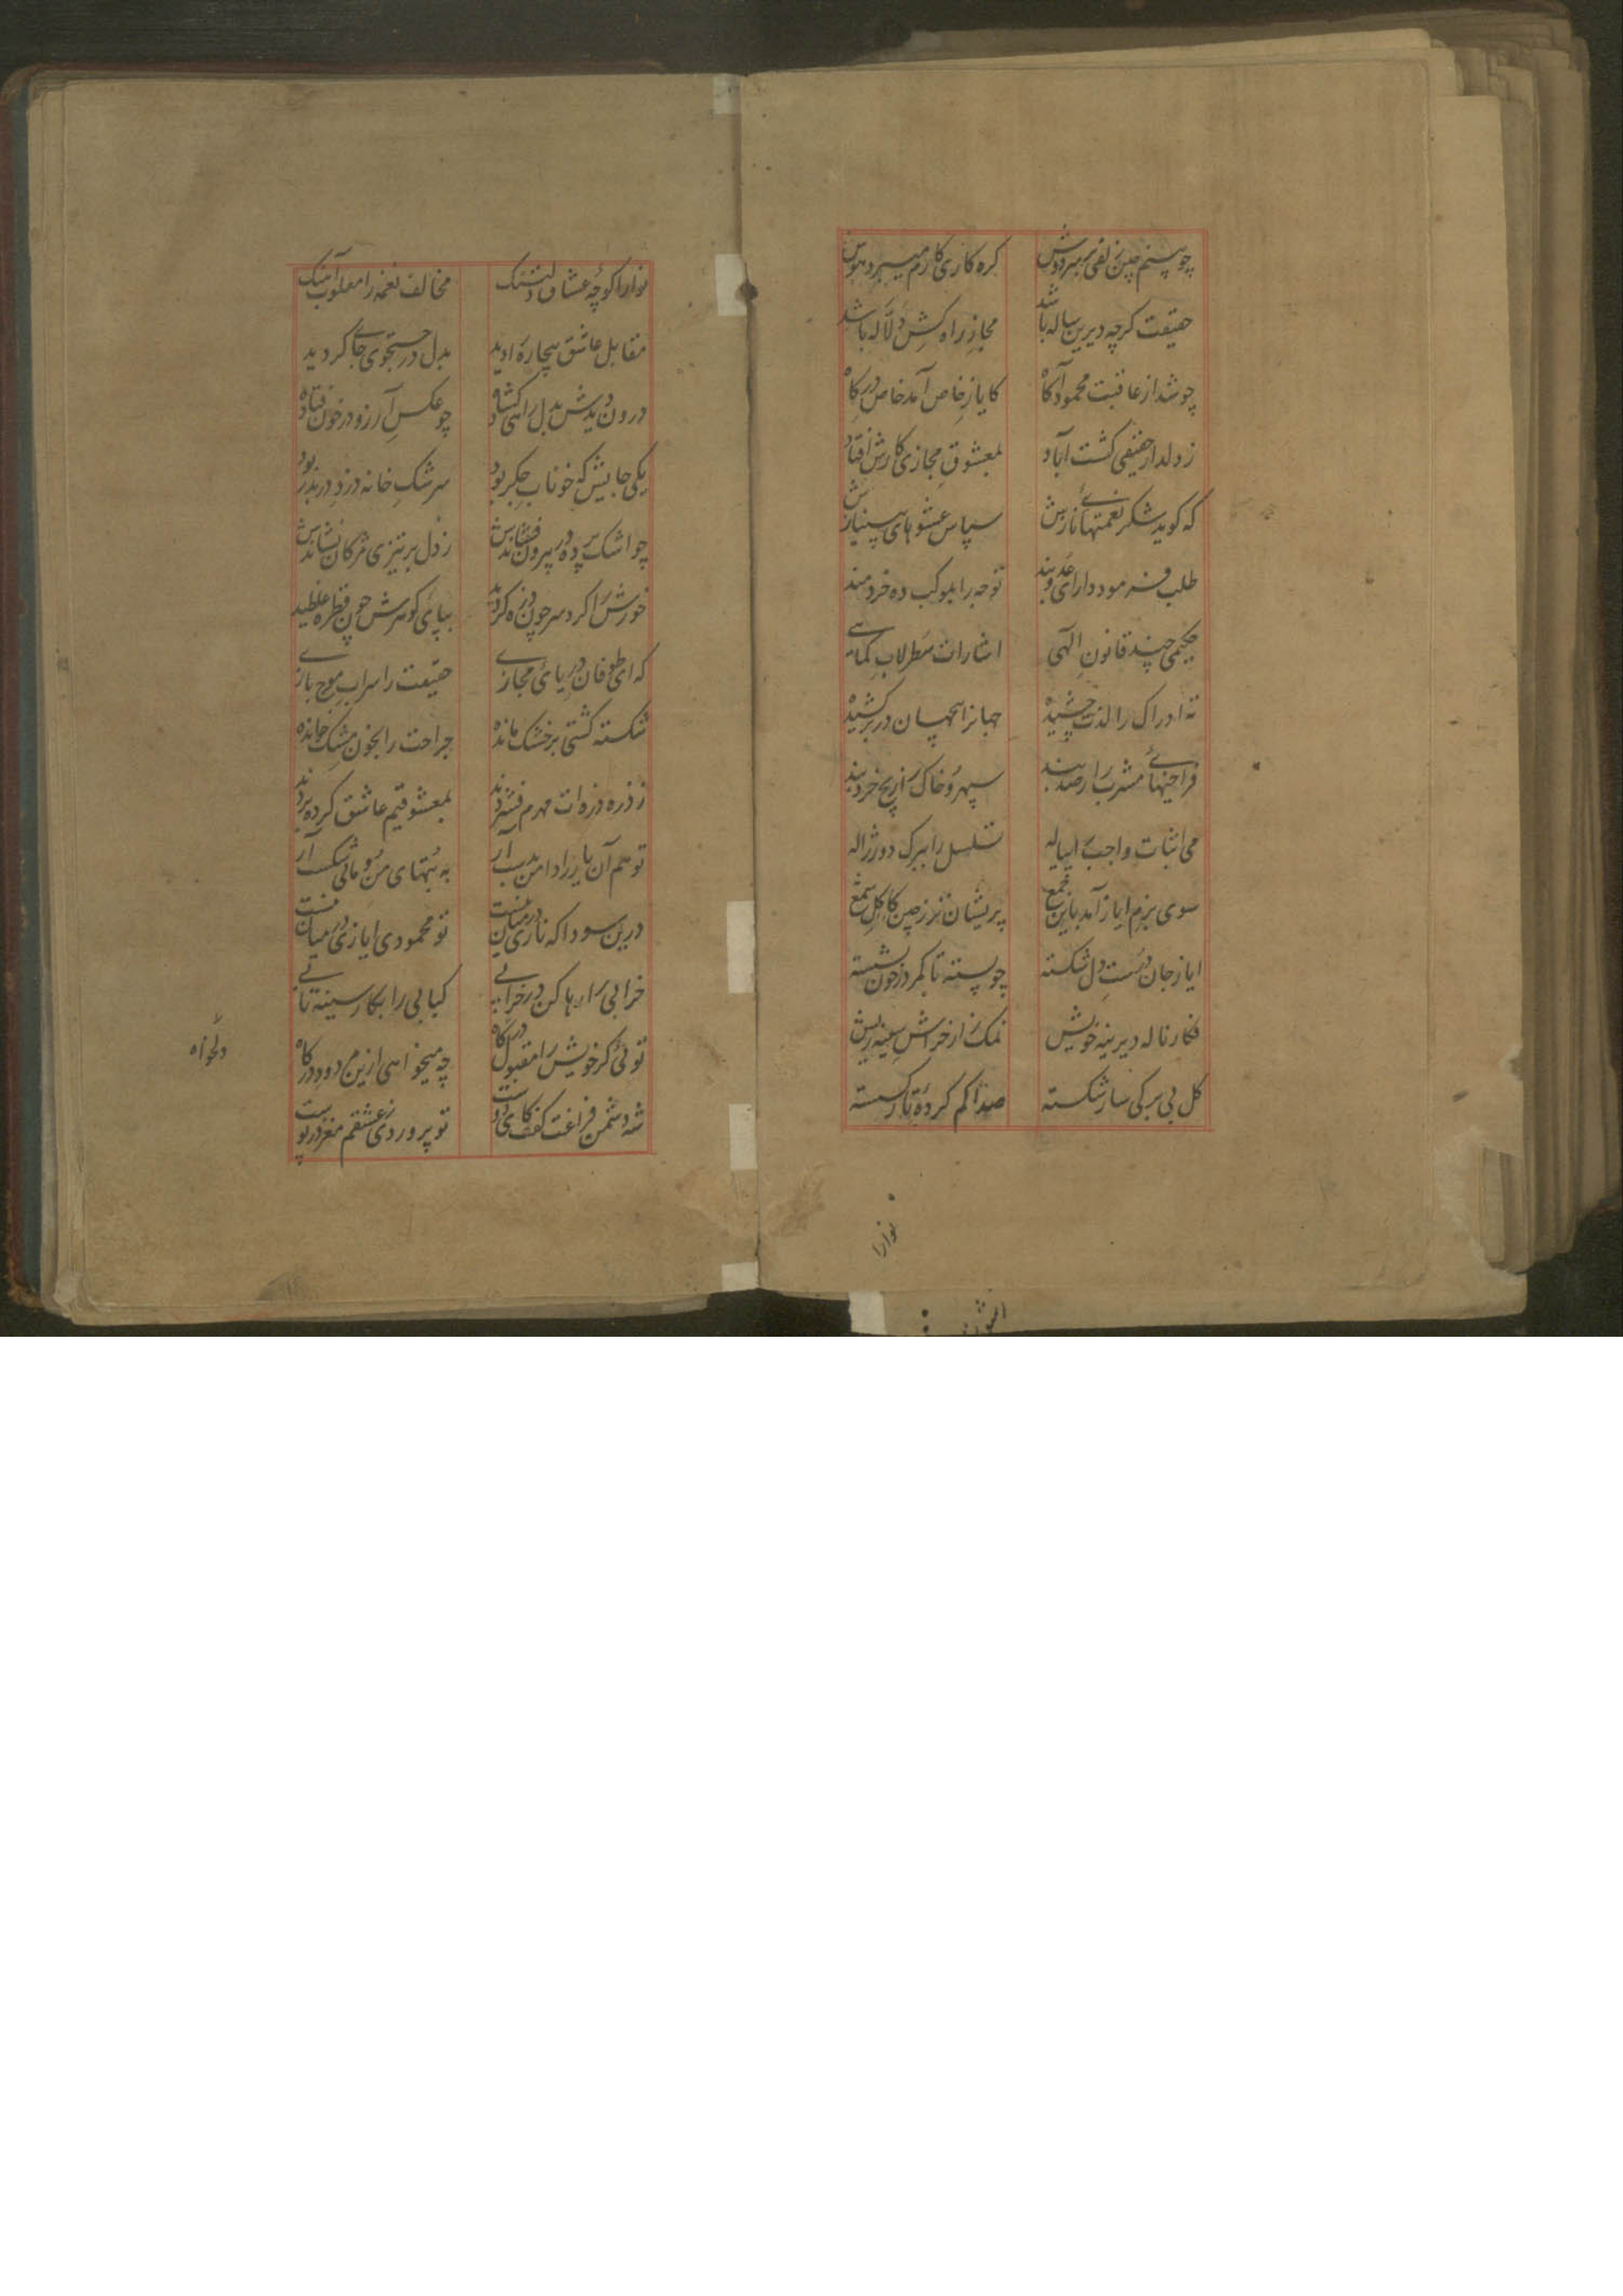 چو بینم چین زلفی بر سر دوش گره کاری کارم میبرد هوش
حقیقت کرچه دیرین ساله باشد مجاز راه کش دلاله باشد
چو شد از عاقبت محمود آکاه کایاز خاص آمد خاص درکاه
ز دلدار حقیقی کشت آباد بمعشوق مجازی کارش افتاد
که کوید شکر نعمتهای نازش سپاس عشوهای
طلب فرمود دارای توجه را بموکب ده خردمند
حکیمی چند قانون الٓهی اشارات سطرلاب کماهی
ته ادراک را لذت چشیده جهانرا همچسان در بر کشیده
فراخیهای مشرب را رصدبند سپهر و خاک را زیج خردبند
می اثبات واجب را پیاله تسلسل را ببرک دو ژاله
سوی بزم ایاز آمد باین جمع پریشان تر ز چین کاکل شمع
ایاز جان درست دل شکسته چو پسته تا کمر در خون نشسته
فکار ناله دیرینه خویش نمک زار خراش سینه ریش
کل بی برکی شکسته صدا کم کردهٔ تار کسسته
نوارا
نوارا کوچهٔ عشاق دلتنک مخالف نغمه را مغلوب آهنک
مقابل عاشق بیچاره را دید بدل در جستجوی جای کردید
درون دیدش بدل راهی کشاده چو عکس آرزو در خون فتاده
یکی جایش که خوناب جکر بود سرشک خانه دزد در بدر بود
چو اشک پرده در بیرون ز دل بر تیزی مژکان نشاندش
خورش را کرد سر چون ذره کردید بپای کوهرش چون قطره غلطید
که ای طوفان دریای مجازی حقیقت را سراب موج بازی
شکسته کشتی بر خشک مانده جراحت را بخون مشک خوانده
ز ذره ذره ات مهرم فشردند بمعشوقیم عاشق کرده بردند
تو هم آن یار را دامن بدست آر به بتهای من و مائی شکست آر
درین سودا که نازی در میان نیست تو محمودی ایازی در میان نیست
خرابی را رها کن در خرابی کبابی را بکار سینه تابی
توئی کر خویش را مقبول درکاه چه میخواهی ازین مردود درکاه
شد دشمن فراغت کفت کای دوست تو پروردی ز عشقم مغز در پوست
دلخواه